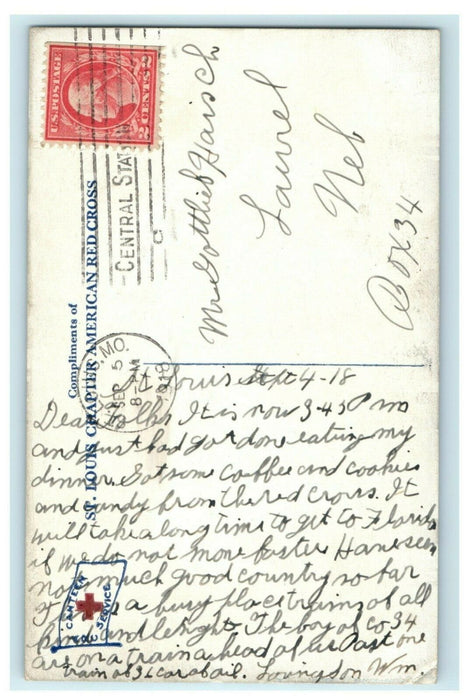 U.S. POSTAGE
2 CENTS 2
CENTRAL STATION
MO.
SEP 5
8 PM
1918
Compliments of
ST. LOUIS CHAPTER AMERICAN RED CROSS
Mr Gottlieb Haisch
Laurel
Neb
Box 34
St Louis Sept 4-18
Dear Folks It is now 3 45 P m
and just had got done eating my
dinner Got some coffee and cookies
and candy from the red cross. It
will take a long time to get to Florida
if we do not move faster Have seen
not much good country so far
a busy place trains of all
kind and lenght The boys of Co 34
are on a train ahead of us Past one
train of 36 car of oil. Loving son Wm.
CANTEEN
SERVICE